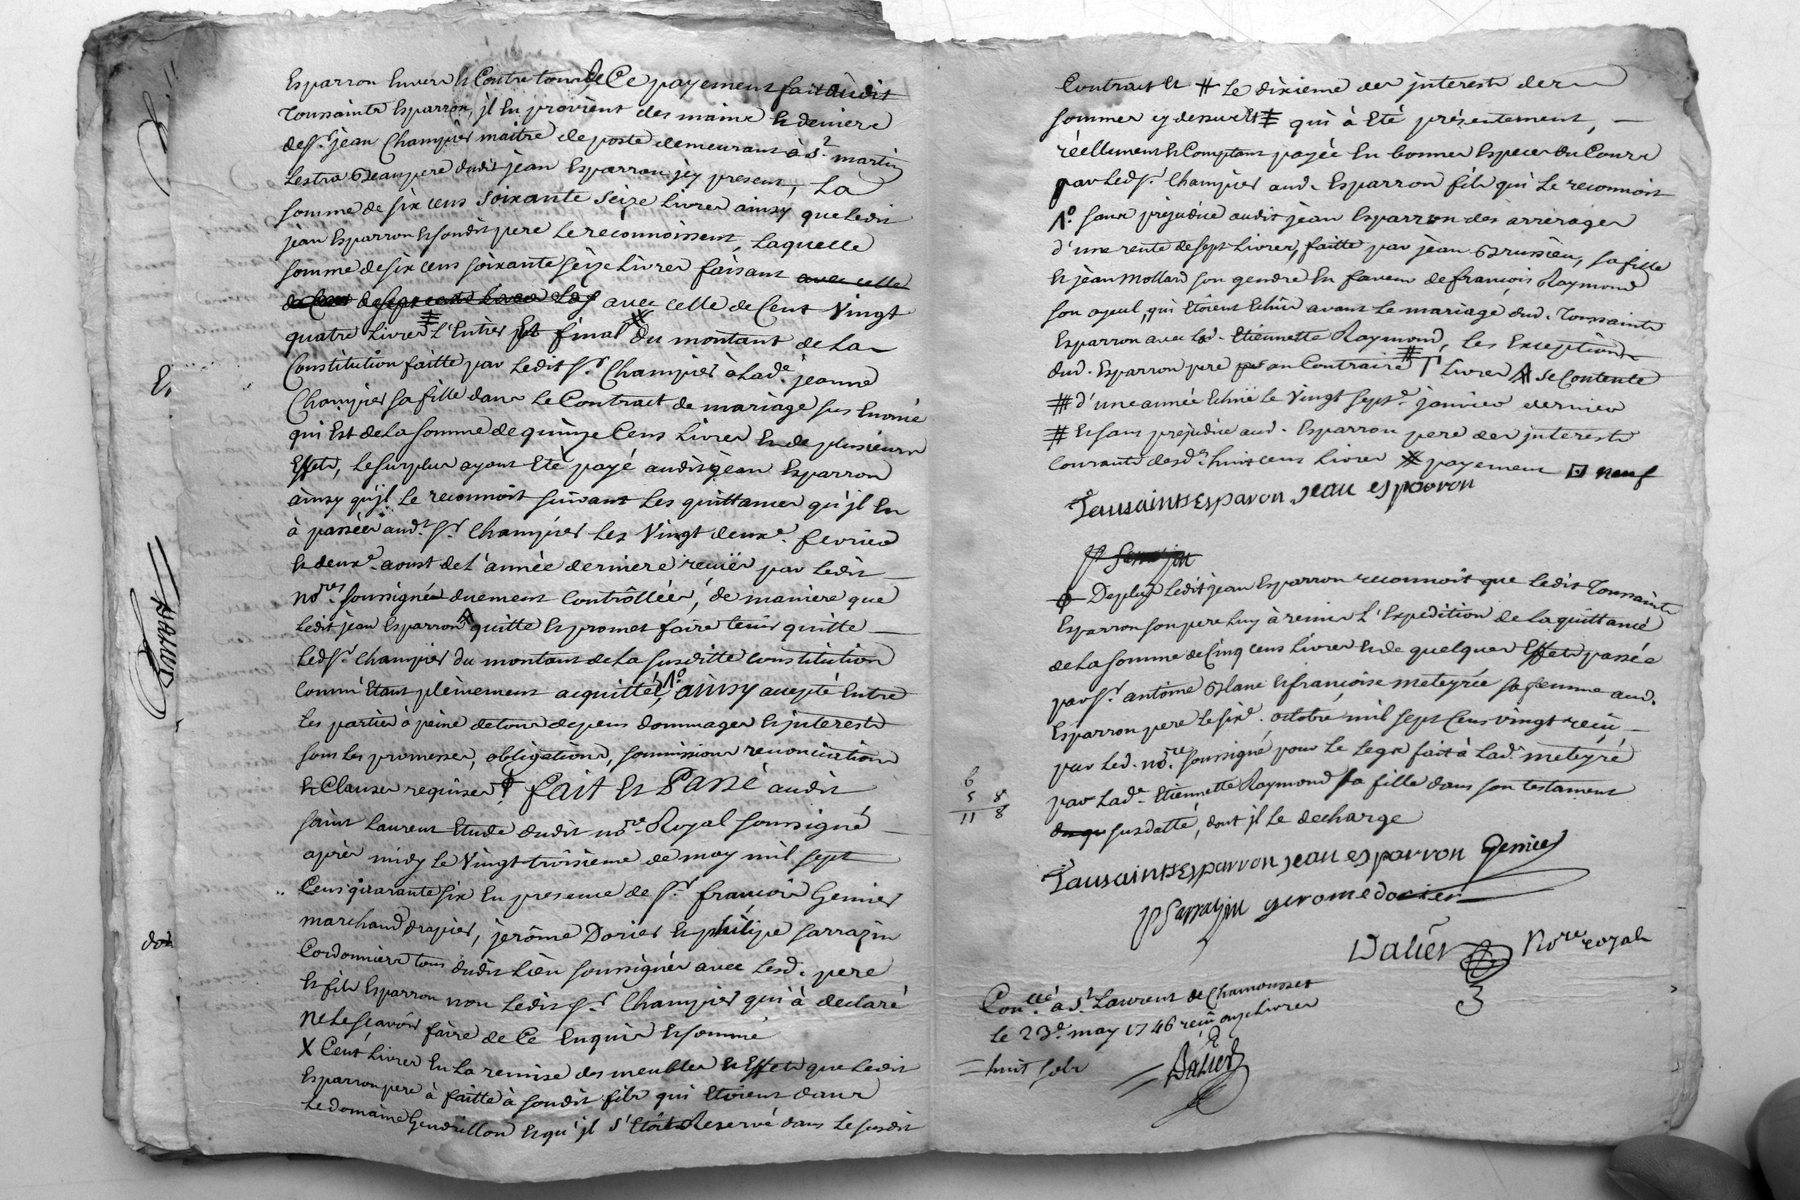 Esparron Envers et Contre tous de Ce payement fait audit
Toussaints Esparron, jl En provient des mains et deniers
de sr. jean Champier maitre de poste demeurant à St. martin
Lestra Beaupere dudit jean Esparron jcy present, La
somme de six cens soixante seize Livres ainsy que Ledit
jean Esparron et sondit pere Le reconnoissent, Laquelle
somme de six cens soixante seize Livres faisant avec celle
de sept cents Livres avec celle de Cent Vingt
quatre Livres # L'Entier et final du montant de La
Constitution faitte par Ledit sr. Champier à Lade. jeanne
Champier sa fille dans Le Contract de mariage sus Enoncé
qui Est de La somme de quinze Cens Livres et de plusieurs
Effets, Le surplus ayant Eté payé audit jean Esparron
ainsy qu'jl Le reconnoit suivant Les quittances qu'jl En
à passées audt. sr. Champier Les Vingt deuxe. fevrier
et deuxe. aoust de L'année derniere reçües par Ledit
nores. soussigné duement Contrôllées, de maniere que
Ledit jean Esparron quitte et promet faire tenir quitte
Ledsr. Champier du montant de La susditte Constitution
comm'Etant pleinement acquittée, 1o. ainsy accepté Entre
Les parties à peine de tous depens dommages et interests
sous Les promesses, obligations, soumissions renonciations
et Clauses requises φ fait et Passé audit
saint Laurent Etude dudit nore. Royal soussigné
après midy Le Vingt troisieme de may mil sept
Cens quarante six En presence de sr. françois Genier
marchand drapier, jerôme Dorier et philipe sarrazin
Cordonniers tous dudit Lieu soussignés avec Lesd. pere
et fils Esparron non Ledit sr. Champier qui à declaré
ne Le sçavoir faire de Ce Enquis et sommé
X Cent Livres En La remise des meubles et Effets que Ledit
Esparron pere à faitte à sondit fils qui Etoient dans
Le domaine Gendrillon et qu'jl s'Etoit Reservé dans Le susdit
Et
Contract et # Le dixieme des interests des
sommes cy dessus # qui à Eté présentement,
réellement et Comptant payée En bonnes Especes du Cours
par Ledsr. Champier aud. Esparron fils qui Le reconnoit
1o. sans prejudice audit jean Esparron des arrerages
d'une rente de sept Livres, faitte par jean Brussieu, sa fille
et jean Mollard son gendre En faveur de françois Raymond
son ayeul, qui Etoient Echus avant Le mariage dud. Toussaints
Esparron avec Lad. Etiennette Raymond, Les Exceptions
dud. Esparron pere au Contraire # Livres # se Contente
# d'une année Echüe Le Vingt septe. janvier dernier
# et sans prejudice aud. Esparron pere des interests
Courants desds. huit cens Livres # payement neuf
Tousaint Esparon jean esparron
φ De plus Ledit jean Esparron reconnoit que Ledit Toussaints
Esparron son pere Luy à remis L'Expedition de La quittance
de La somme de Cinq cens Livres et de quelques Effets passée
par sr. antoine Blanc et françoise meteyrée sa femme aud.
Esparron pere Le sixe. octobre mil sept Cens vingt reçu
par Led. nore. soussigné pour Le Legs fait à Lad. meteyré
par Lade. Etiennette Raymond sa fille dans son testament
susdatté, dont jl Le decharge
6
5 8
11 8
Tousaint Esparron jean esparron Genier
P Sarrazin gerome dorier
Dalier Nore royal
Conllé. à St. Laurent de Chamousset
le 23e. may 1746 reçu onze Livres
huit sols
Dalier